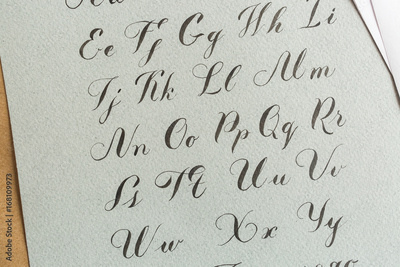 Ee Ff Gg Hh Ii
Jj Kk Ll Mm
Nn Oo Pp Qq Rr
Ss Tt Uu Vv
Ww Xx Yy
Adobe Stock | #168109973